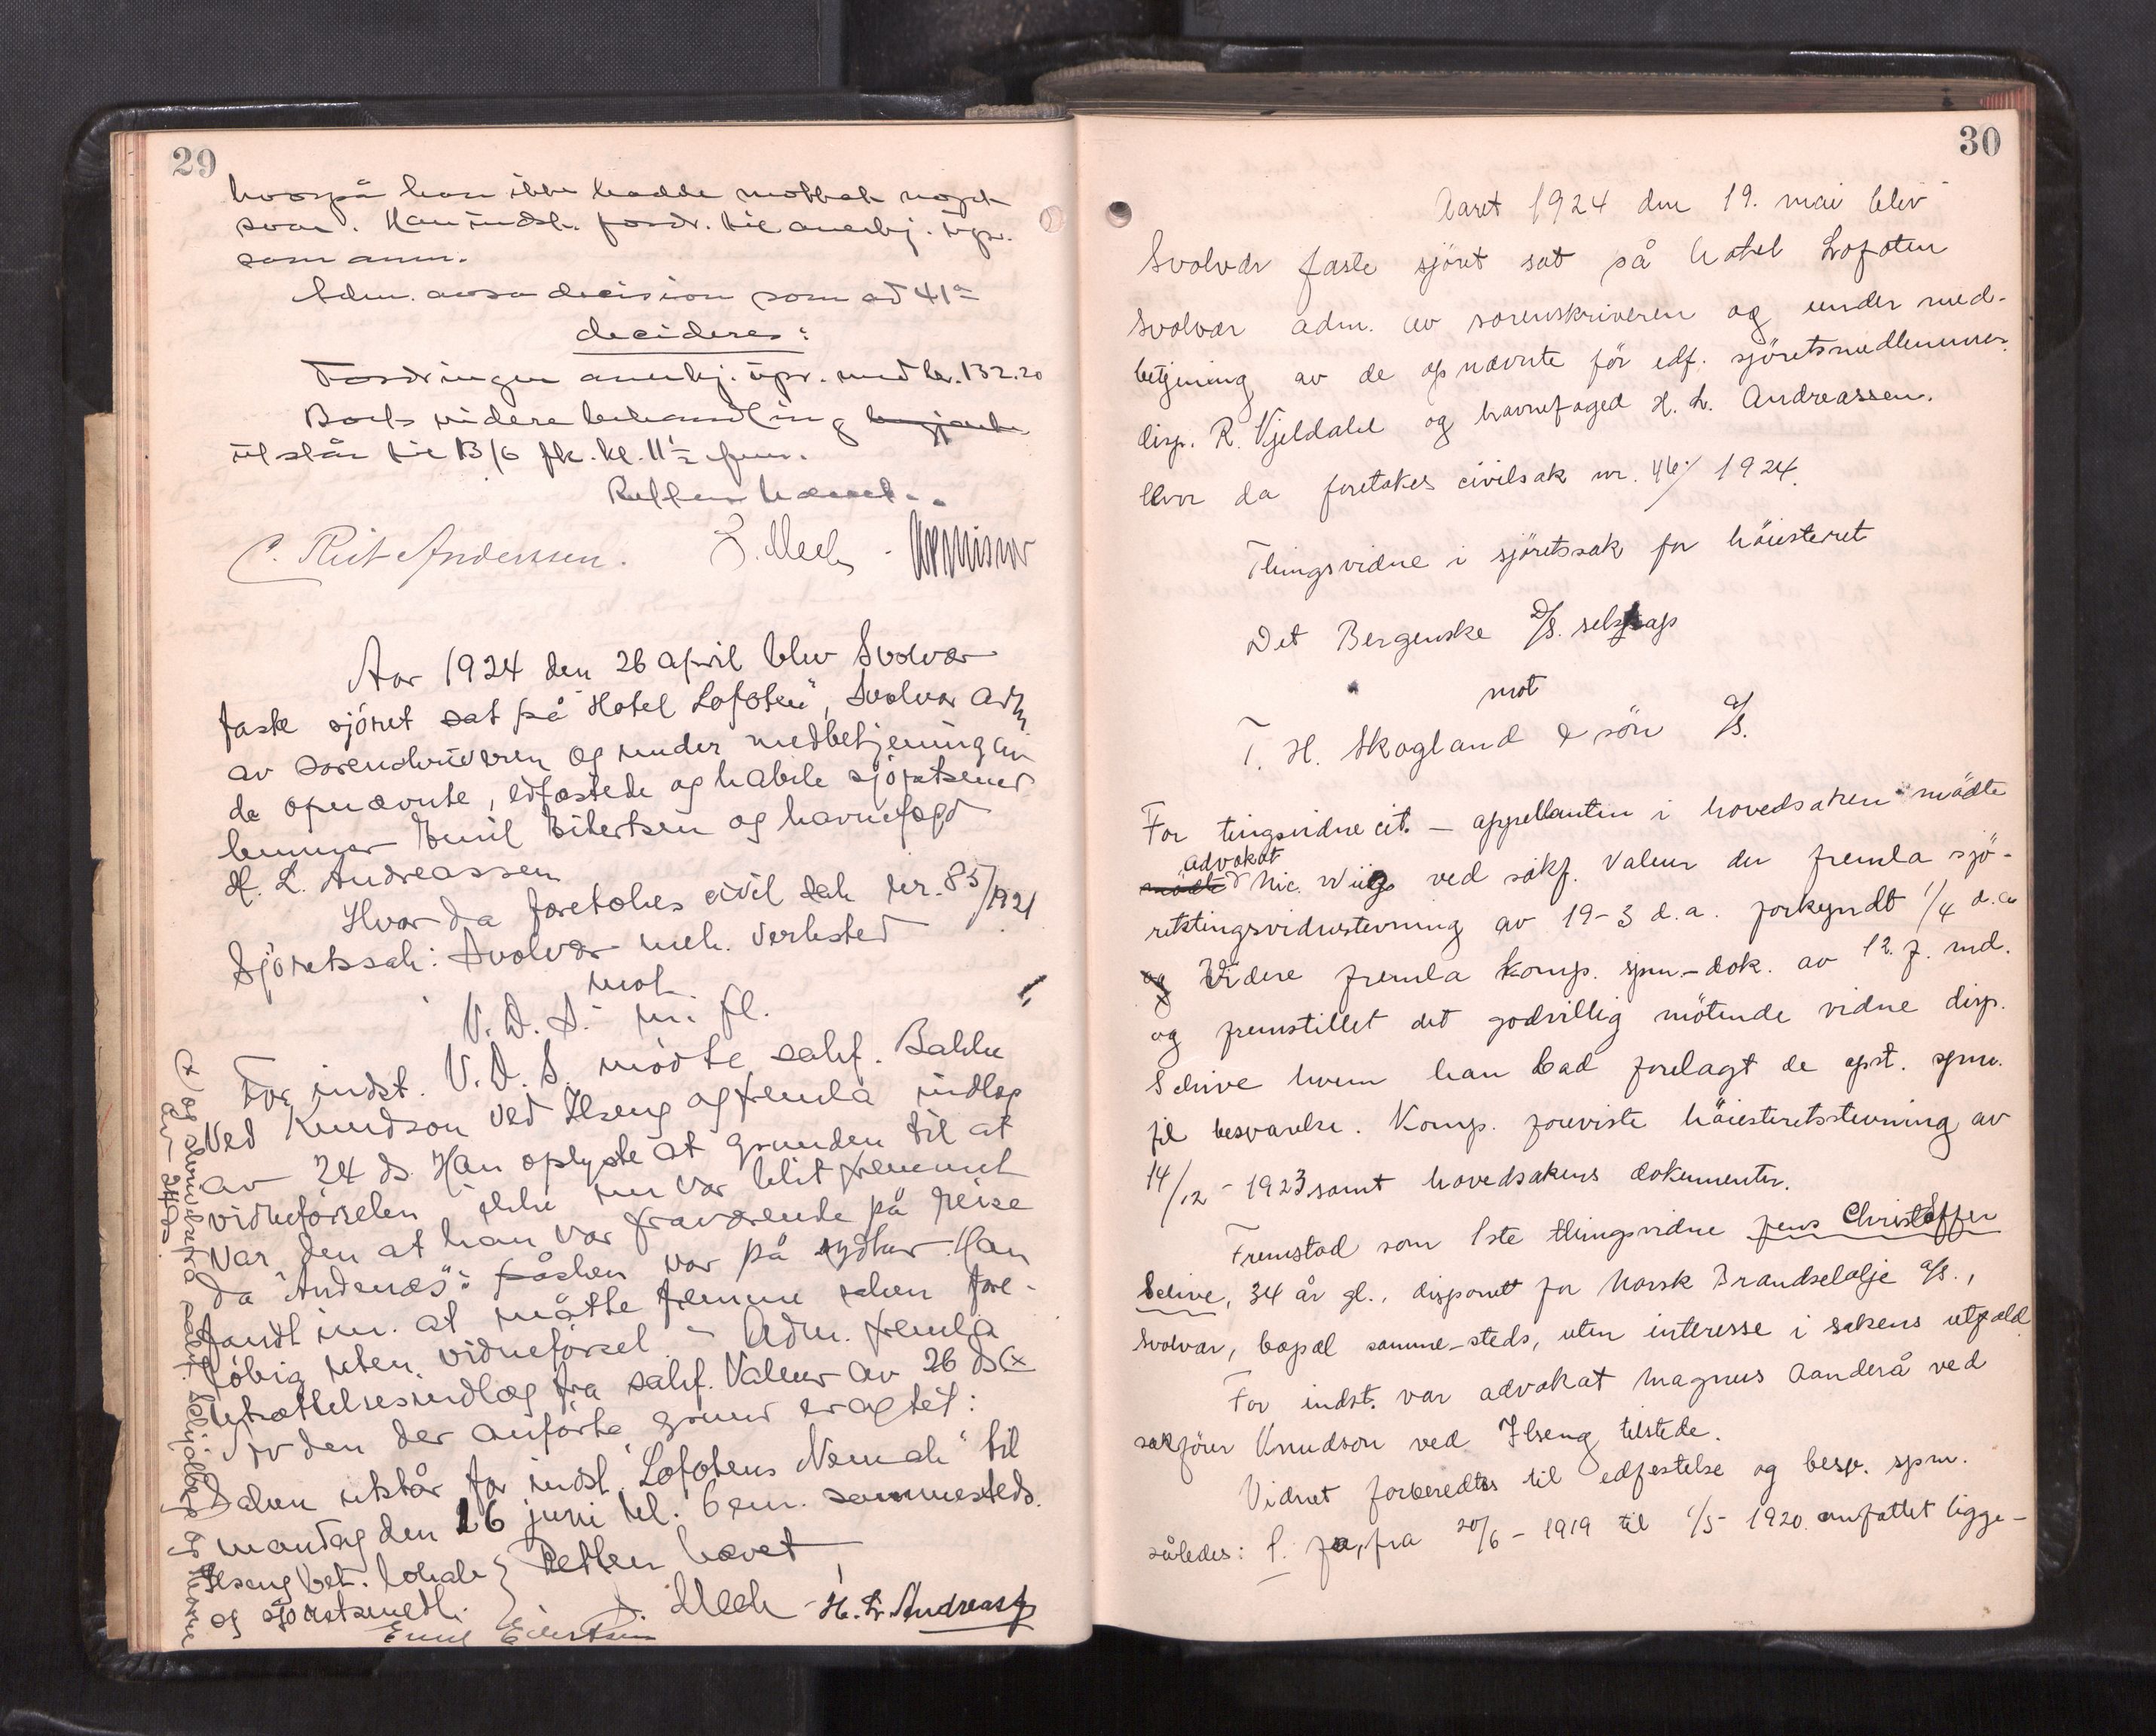 29
hvorpå han ikke hadde mottat noget
svar. Han indst. fordr. til anerkj. upr.
som anm.
Adm. avsa decision som ad 41 a
decideres:
Fordringen anerkj. upr. med kr. 132.20
Boets videre behandling
utstår til 13/6 fk. kl. 11½ fm.
Retten hævet.
C. Riit Anderssen. J. Mech
Aar 1924 den 26 april blev Svolvær
faste sjöret sat på "Hotel Lofoten", Svolvær adm
av sorenskriveren og under medbetjening av
de opnævnte, edfæstede og habile sjöretsmed
lemmer Emil Eilertsen og havnefogd
H. L. Andreassen
Hvor da foretokes civil sak nr. 85/1921
Sjöretssak: Svolvær mek. Verksted
mot
V. D. S. m. fl.
For indst. V. D. S. mödte sakf. Bakke
ved Knudson ved Ilseng og fremla indlæg
av 24 ds. Han oplyste at grunden til at
vidneförselen ikke nu var blit fremmet
var den at han var fraværende på reise
da "Andenæs": påsken var på sydtur. Han
fandt nu at måtte fremme saken fore-
löbig uten vidneförsel. - Adm. fremla
utsættelsesindlæg fra sakf. Valeur av 26 ds (x
Av den der anförte grund eragtet:
Saken utstår for indst. "Lofotens Nemak" til
mandag den 16 juni kl. 6 em. sammesteds.
Ilseng bet. lokale } Retten hævet
og sjöretsmedl. } J. Mech - H. L. Andreassen
Emil Eilertsen
x) og skrivelse fra sakf.
av 24 ds.
30
Aaret 1924 den 19. mai blev
Svolvær faste sjöret sat på hotel Lofoten
Svolvær adm. av sorenskriveren og under med-
betjening av de opnævnte för edf. sjöretsmedlemmer
disp. R. Kjeldahl og havnefoged H. L. Andreassen.
Hvor da foretokes civilsak nr. 46/1924.
Thingsvidne i sjöretssak for höiesteret
Det Bergenske D/S. selskap
mot
T. H. Skogland & sön A/S.
For tingsvidne cit. - appellanten i hovedsaken mödte
mödte advokat Nic. Wiig ved sakf. Valeur der fremla sjö-
retstingsvidnestevning av 19-3 d.a. forkyndt 1/4 d.a
og Videre fremla komp. spm.-dok. av 12. f. md.
og fremstillet det godvillig mötende vidne disp.
Schive hvem han bad forelagt de opst. spm.
til besvarelse. Komp. foreviste höiesteretsstevning av
14/12 - 1923 samt hovedsakens dokumenter.
Fremstod som 1ste thingsvidne Jens Christoffer
Schive, 34 år gl., disponent for Norsk Brændselolje A/S.,
Svolvær, bopæl samme-steds, uten interesse i sakens utfald
For indst. var advokat Magnus Aanderå ved
sakförer Knudson ved Ilseng tilstede.
Vidnet forberedtes til edfestelse og besv. spm.
således: 1. Ja, fra 20/6 - 1919 til 1/5 - 1920. omfattet ligge-